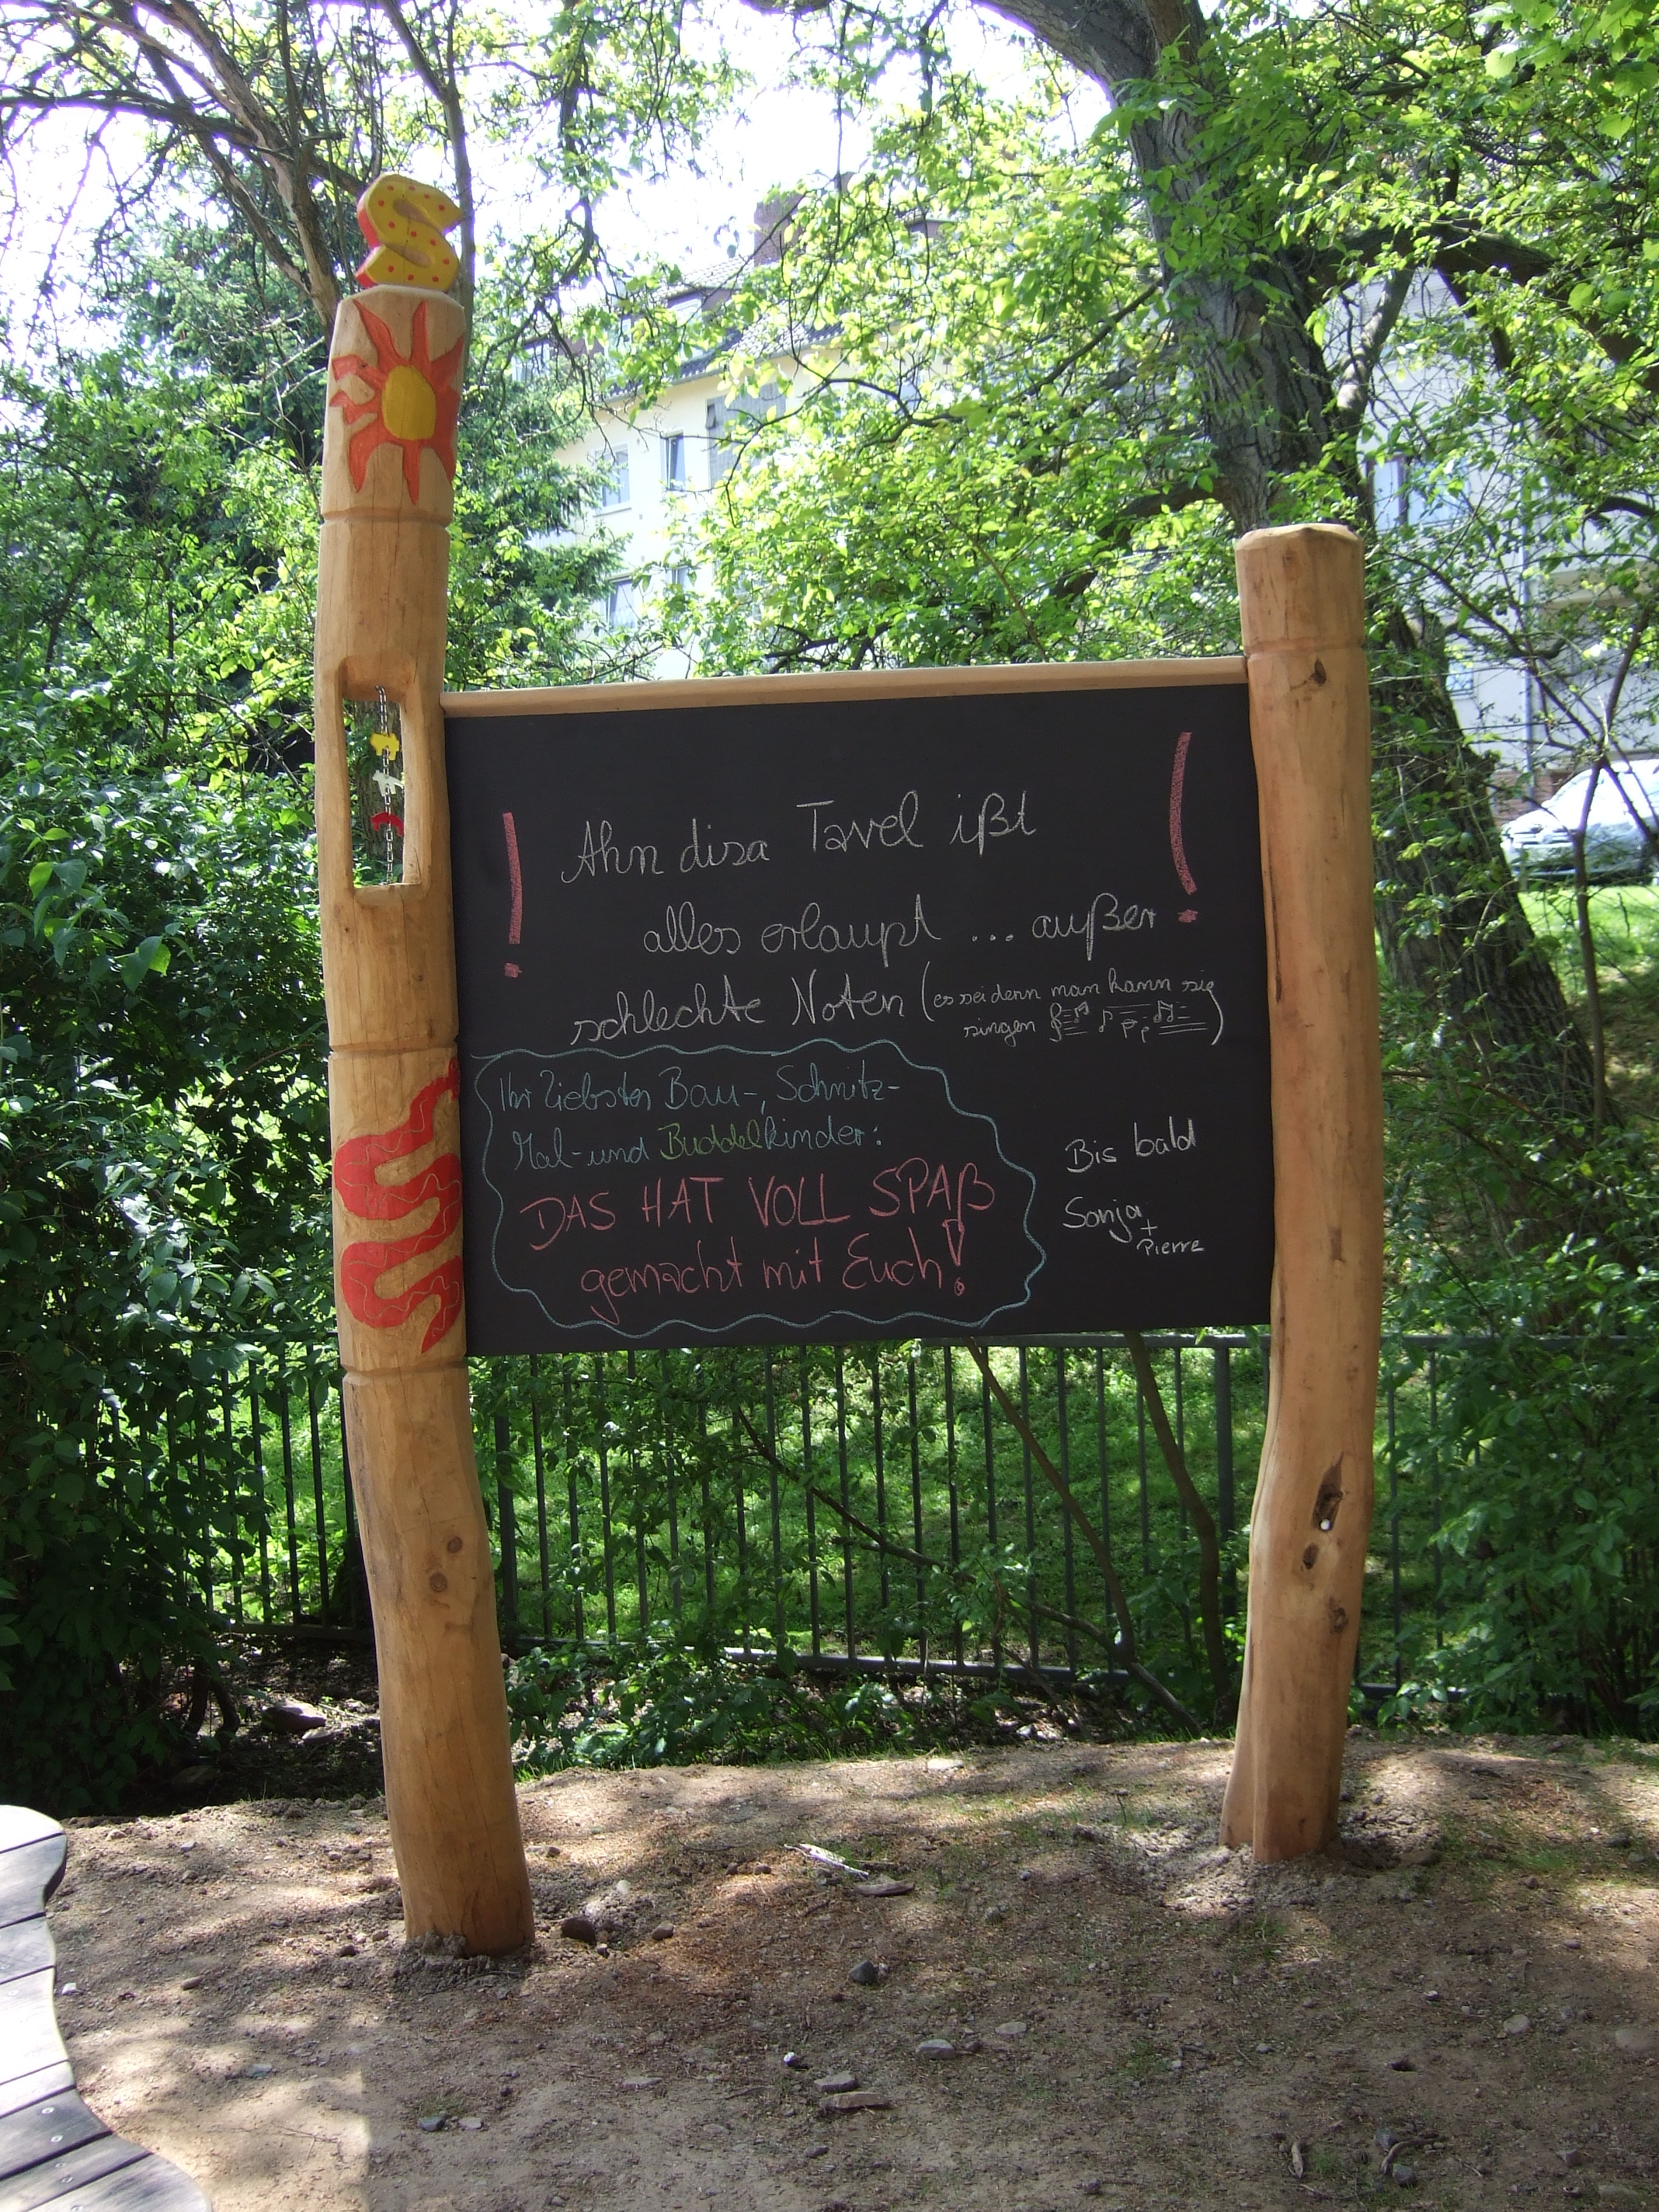 S
! Ahn disa Tavel ißt !
alles erlaupt ... außer
schlechte Noten (es sei denn man kann sie
singen)
Ihr liebsten Bau-, Schnitz-
Mal- und Buddelkinder:
DAS HAT VOLL SPAß
gemacht mit Euch!
Bis bald
Sonja
+
Pierre